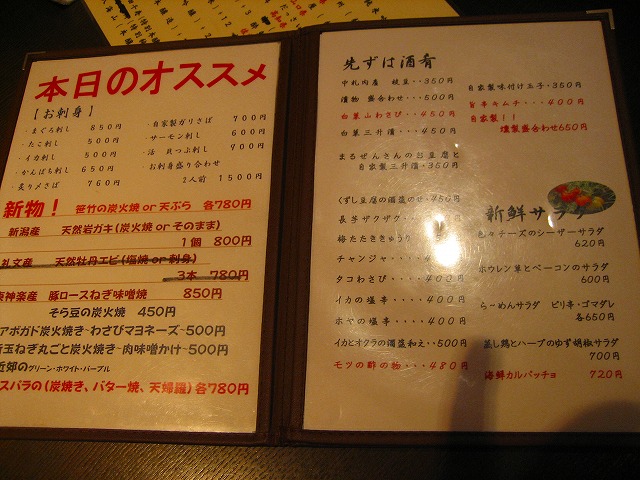 本日のオススメ
【お刺身】
・まぐろ刺し 850円
・たこ刺し 500円
・イカ刺し 500円
・かんぱち刺し 650円
・炙り〆さば 760円
・自家製ガリさば 700円
・サーモン刺し 600円
・活 貝つぶ刺し 900円
・お刺身盛り合わせ
2人前 1500円
新物! 笹竹の炭火焼 or 天ぷら 各780円
新潟産 天然岩ガキ(炭火焼 or そのまま)
1個 800円
礼文産 天然牡丹エビ(塩焼 or 刺身)
3本 780円
東神楽産 豚ロースねぎ味噌焼 850円
そら豆の炭火焼 450円
アボガド炭火焼き~わさびマヨネーズ~500円
新玉ねぎ丸ごと炭火焼~肉味噌かけ~500円
近郊のグリーン・ホワイト・パープル
スパラの(炭焼き、バター焼、天婦羅)各780円
先ずは酒肴
中札内産 枝豆・・350円
漬物 盛合わせ・・500円
白菜山わさび・・450円
白菜三升漬・・450円
まるぜんさんのお豆腐と
自家製三升漬・350円
くずし豆腐の酒盗のせ・450円
長芋ザクザク・・・400円
梅たたききゅうり
チャンジャ・・・・
タコわさび・・・・400円
イカの塩辛・・・・400円
ホヤの塩辛・・・・400円
イカとオクラの酒盗和え・・500円
モツの酢の物・・・480円
自家製味付け玉子・350円
旨辛キムチ・・・400円
自家製!!
燻製盛合わせ650円
新鮮サラダ
色々チーズのシーザーサラダ
620円
ホウレン草とベーコンのサラダ
600円
ら~めんサラダ ピリ辛・ゴマダレ
各650円
蒸し鶏とハーブのゆず胡椒サラダ
700円
海鮮カルパッチョ 720円